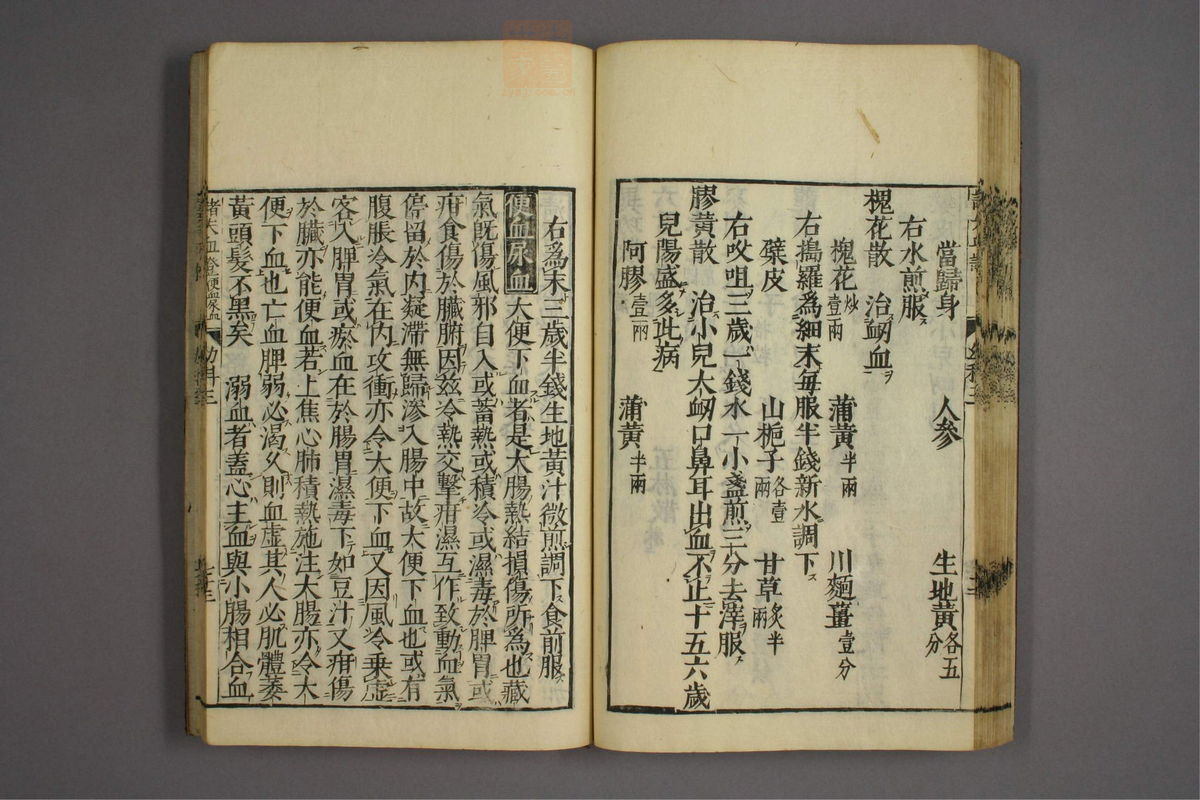 當歸身 人參 生地黃各五分
右水煎服
槐花散 治衂血
槐花炒壹兩 蒲黃半兩 川麵薑壹分
右搗羅為細末每服半錢新水調下
糵皮 山梔子各壹兩 甘草炙半兩
右㕮咀三歲一錢水一小盞煎三分去滓服
膠黃散 治小兒大衂口鼻耳出血不止十五六歲
兒陽盛多此病
阿膠壹兩 蒲黃半兩
右爲末三歲半錢生地黃汁微煎調下食前服
便血尿血 大便下血者是大腸熱結損傷所爲也藏
氣既傷風邪自入或蓄熱或積冷或濕毒於脾胃或
疳食傷於臟腑因玆冷熱交擊疳濕互作致動血氣
停留於內凝滯無歸滲入腸中故大便下血也或有
腹脹冷氣在內攻衝亦令大便下血又因風冷乘虛
客入脾胃或瘀血在於腸胃濕毒下如豆汁又疳傷
於臟亦能便血若上焦心肺積熱施注大腸亦令大
便下血也亡血脾弱必渴久則血虛其人必肌體萎
黃頭髮不黑矣 溺血者蓋心主血與小腸相合血
諸大血證便血尿血 幼科三